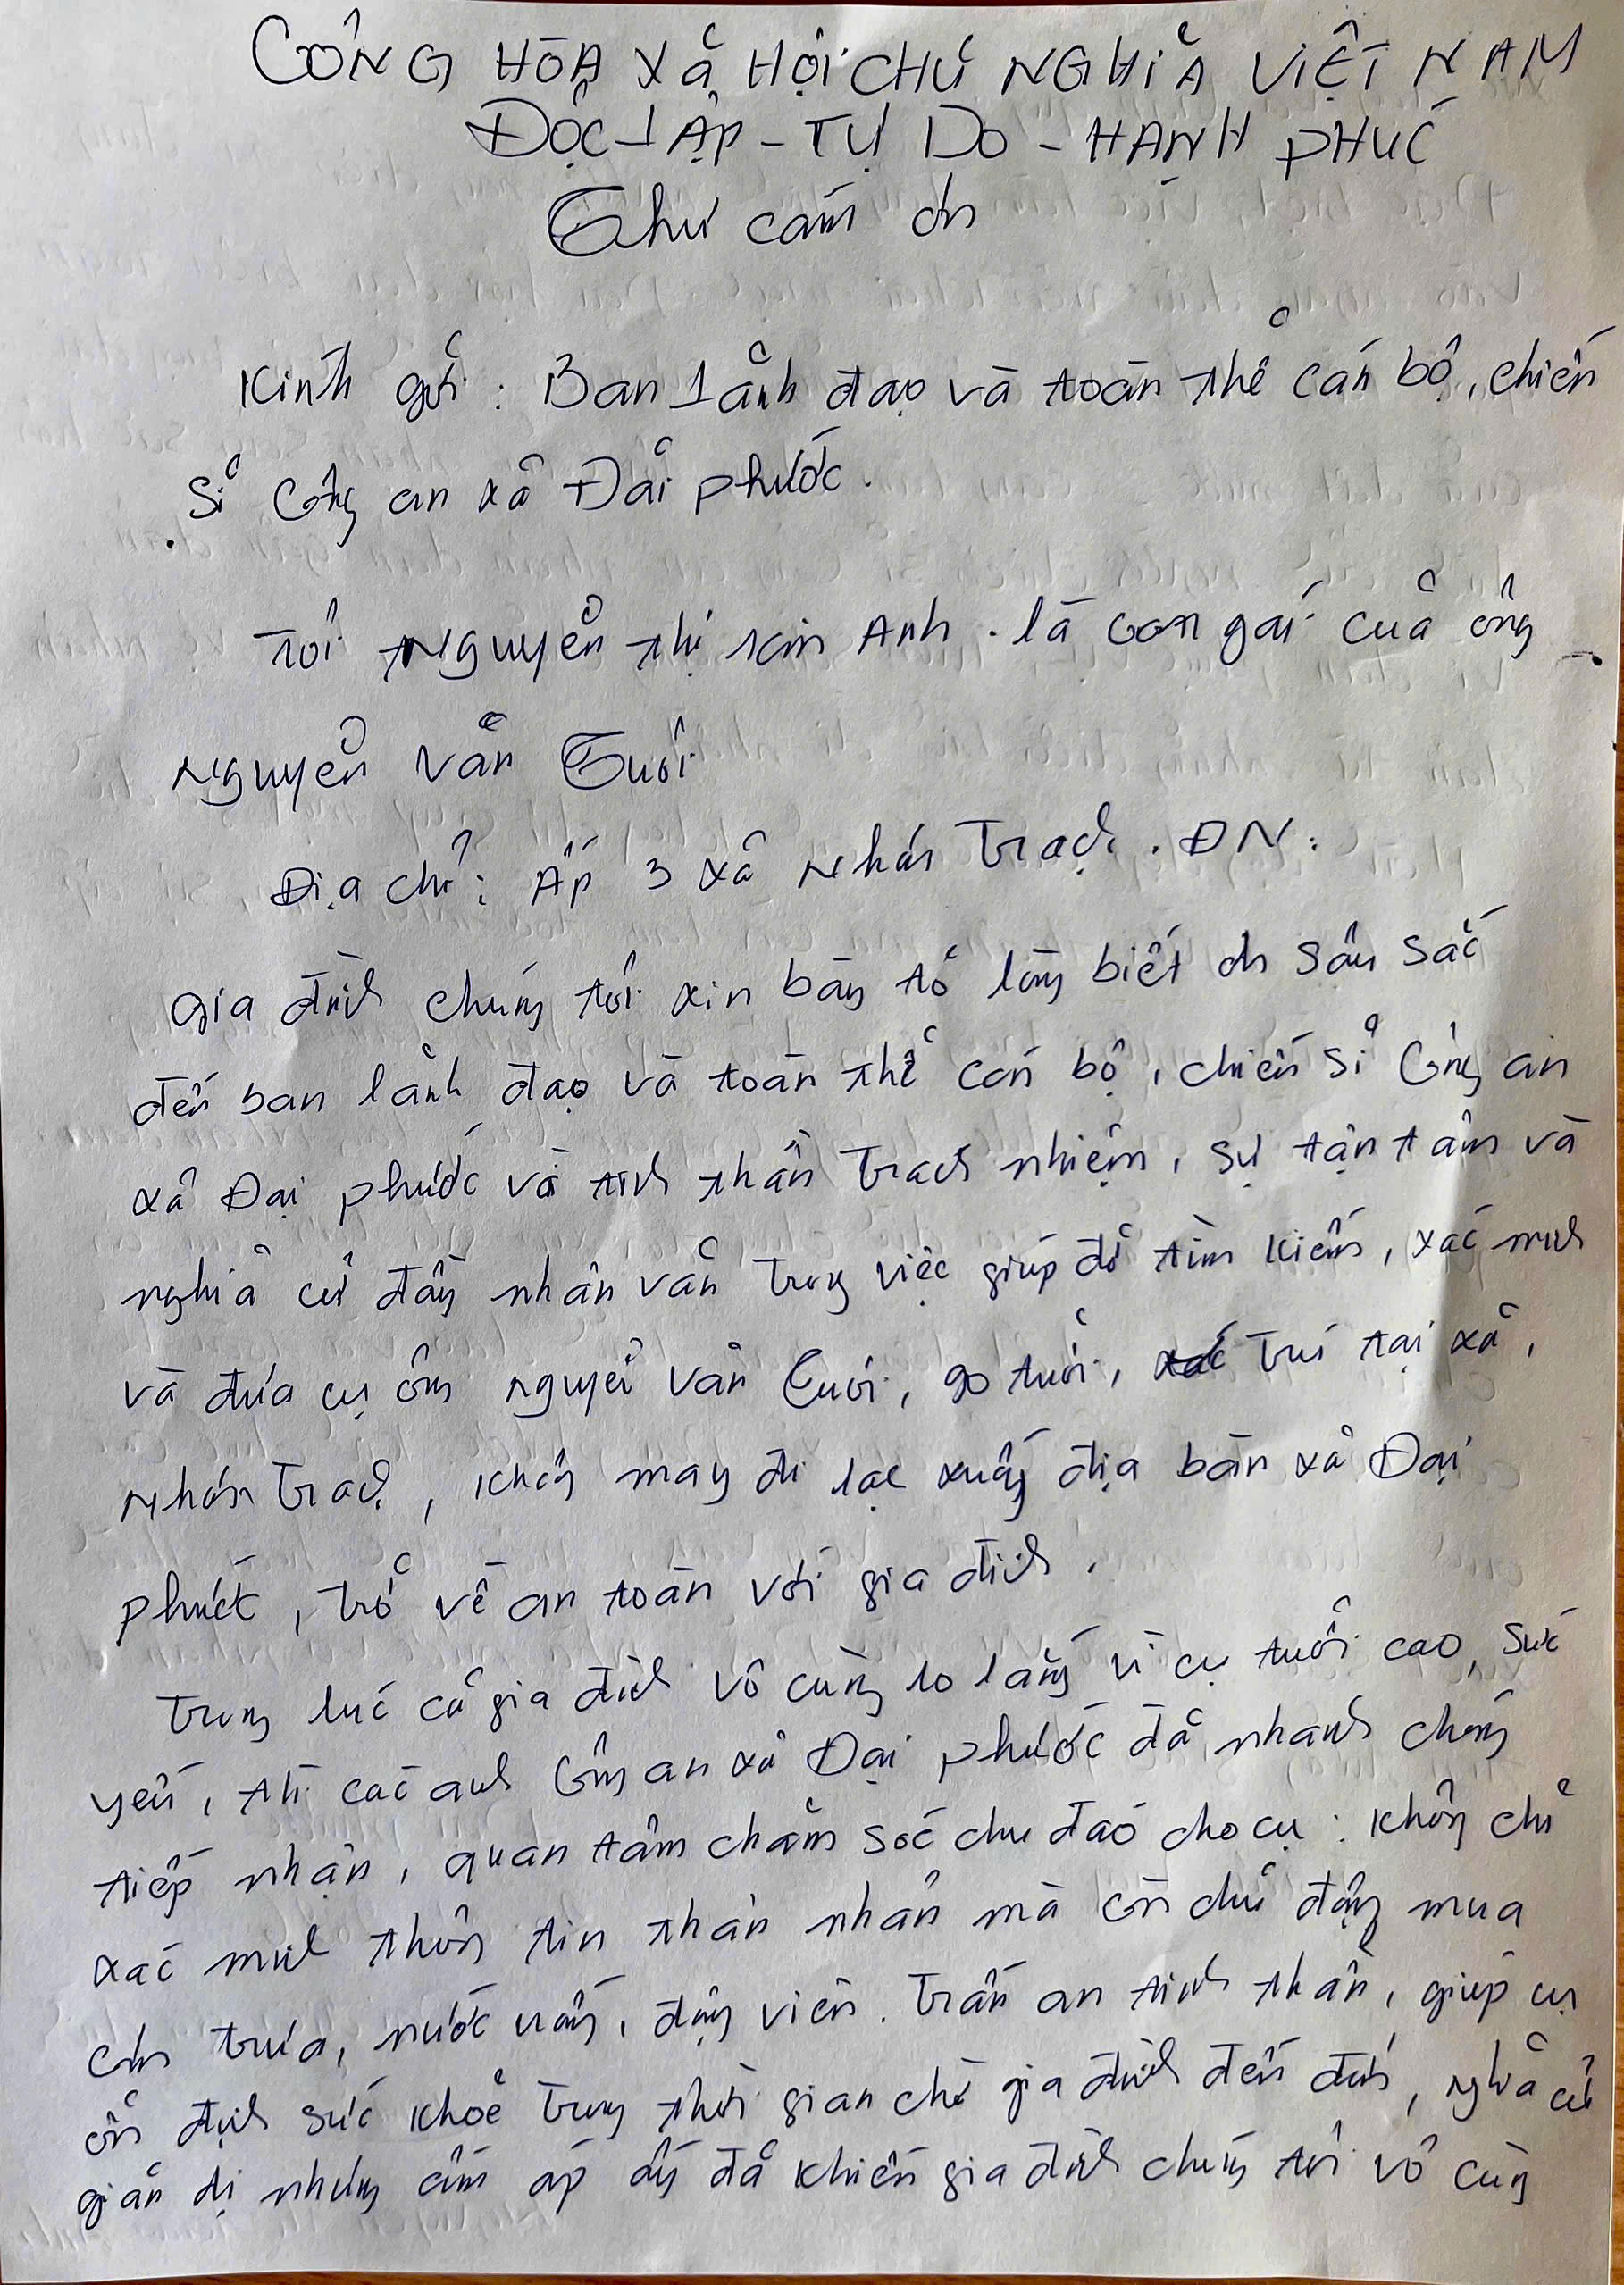 CÔNG HÒA XÃ HỘI CHỦ NGHĨA VIỆT NAM
ĐỘC LẬP - TỰ DO - HẠNH PHÚC
Thư cám ơn
Kính gửi : Ban Lãnh đạo và toàn thể cán bộ, chiến
sĩ Công an xã Đại phước.
Tôi Nguyễn thị Kim Anh . là con gái của ông
Nguyễn Văn Tuôi
Địa chỉ : Ấp 3 xã Nhơn Trạch . ĐN :
Gia đình chúng tôi xin bày tỏ lòng biết ơn sâu sắc
đến ban lãnh đạo và toàn thể cán bộ, chiến sĩ Công an
xã Đại phước và tinh thần trách nhiệm, sự tận tâm và
nghĩa cử đầy nhân văn trong việc giúp đỡ tìm kiếm, xác minh
và đưa cụ ông nguyễn văn Tuôi, 90 tuổi, trú tại xã,
Nhơn Trạch, không may đi lạc xuống địa bàn xã Đại
phước, trở về an toàn với gia đình.
Trong lúc cả gia đình vô cùng lo lắng vì cụ tuổi cao, sức
yếu, thì các anh Công an xã Đại phước đã nhanh chóng
tiếp nhận, quan tâm chăm sóc chu đáo cho cụ : không chỉ
xác minh thông tin thân nhân mà còn chủ động mua
cơm trưa, nước uống, động viên. Trấn an tinh thần, giúp cụ
ổn định sức khoẻ trong thời gian chờ gia đình đến đón, nghĩa cử
giản dị nhưng ấm áp ấy đã khiến gia đình chúng tôi vô cùng